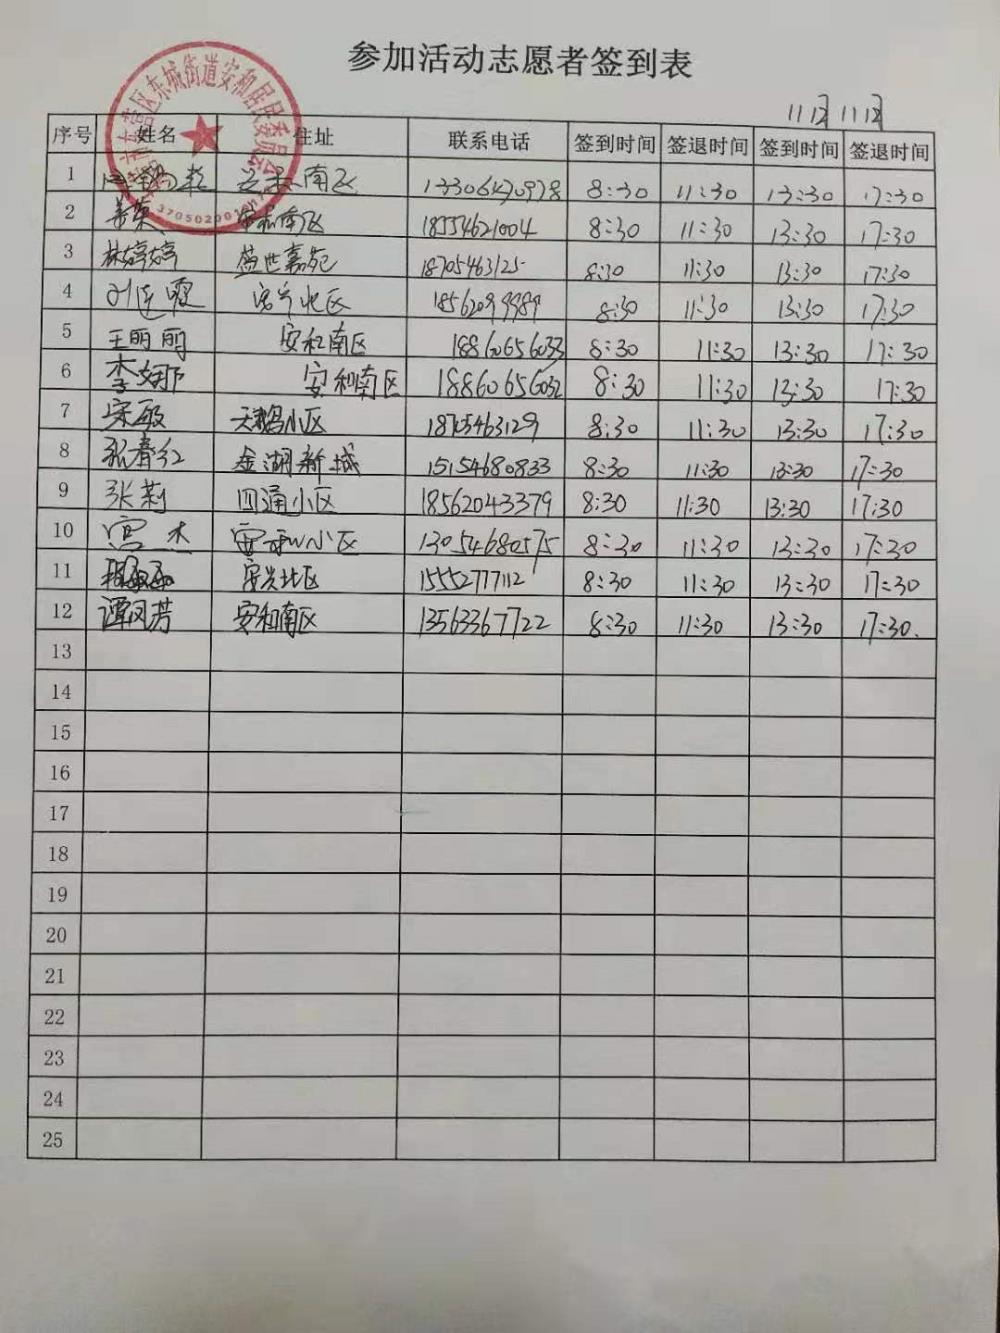 参加活动志愿者签到表
序号 姓名 住址 联系电话 签到时间 签退时间 签到时间 签退时间
东城街道安和居民委员会
1 南区 8:30 11:30 13:30 17:30
2 安和南区 18554621004 8:30 11:30 13:30 17:30
3 林婷婷 盛世嘉苑 8:30 11:30 13:30 17:30
4 刘连霞 北区 8:30 11:30 13:30 17:30
5 王丽丽 安和南区 18860656033 8:30 11:30 13:30 17:30
6 李娜 安和南区 18860656032 8:30 11:30 13:30 17:30
7 宋敏 天鹅小区 18705463129 8:30 11:30 13:30 17:30
8 张春红 金湖新城 15154680833 8:30 11:30 13:30 17:30
9 张莉 四通小区 18562043379 8:30 11:30 13:30 17:30
10 宫杰 安和小区 13054680575 8:30 11:30 13:30 17:30
11 安兴北区 15552777112 8:30 11:30 13:30 17:30
12 谭凤芳 安和南区 13563367722 8:30 11:30 13:30 17:30
13
14
15
16
17
18
19
20
21
22
23
24
25